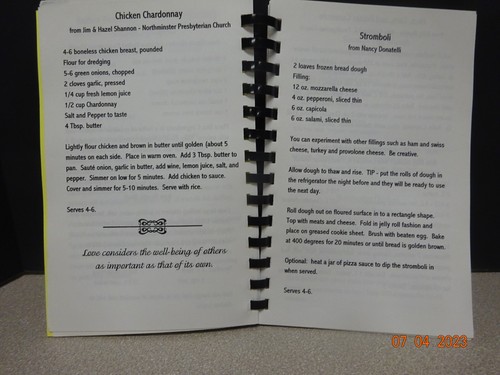 Chicken Chardonnay
from Jim & Hazel Shannon - Northminster Presbyterian Church
4-6 boneless chicken breast, pounded
Flour for dredging
5-6 green onions, chopped
2 cloves garlic, pressed
1/4 cup fresh lemon juice
1/2 cup Chardonnay
Salt and Pepper to taste
4 Tbsp. butter
Lightly flour chicken and brown in butter until golden (about 5
minutes on each side. Place in warm oven. Add 3 Tbsp. butter to
pan. Sauté onion, garlic in butter, add wine, lemon juice, salt, and
pepper. Simmer on low for 5 minutes. Add chicken to sauce.
Cover and simmer for 5-10 minutes. Serve with rice.
Serves 4-6.
Love considers the well-being of others
as important as that of its own.
Stromboli
from Nancy Donatelli
2 loaves frozen bread dough
Filling:
12 oz. mozzarella cheese
4 oz. pepperoni, sliced thin
6 oz. capicola
6 oz. salami, sliced thin
You can experiment with other fillings such as ham and swiss
cheese, turkey and provolone cheese. Be creative.
Allow dough to thaw and rise. TIP - put the rolls of dough in
the refrigerator the night before and they will be ready to use
the next day.
Roll dough out on floured surface in to a rectangle shape.
Top with meats and cheese. Fold in jelly roll fashion and
place on greased cookie sheet. Brush with beaten egg. Bake
at 400 degrees for 20 minutes or until bread is golden brown.
Optional: heat a jar of pizza sauce to dip the stromboli in
when served.
Serves 4-6.
07 04 2023